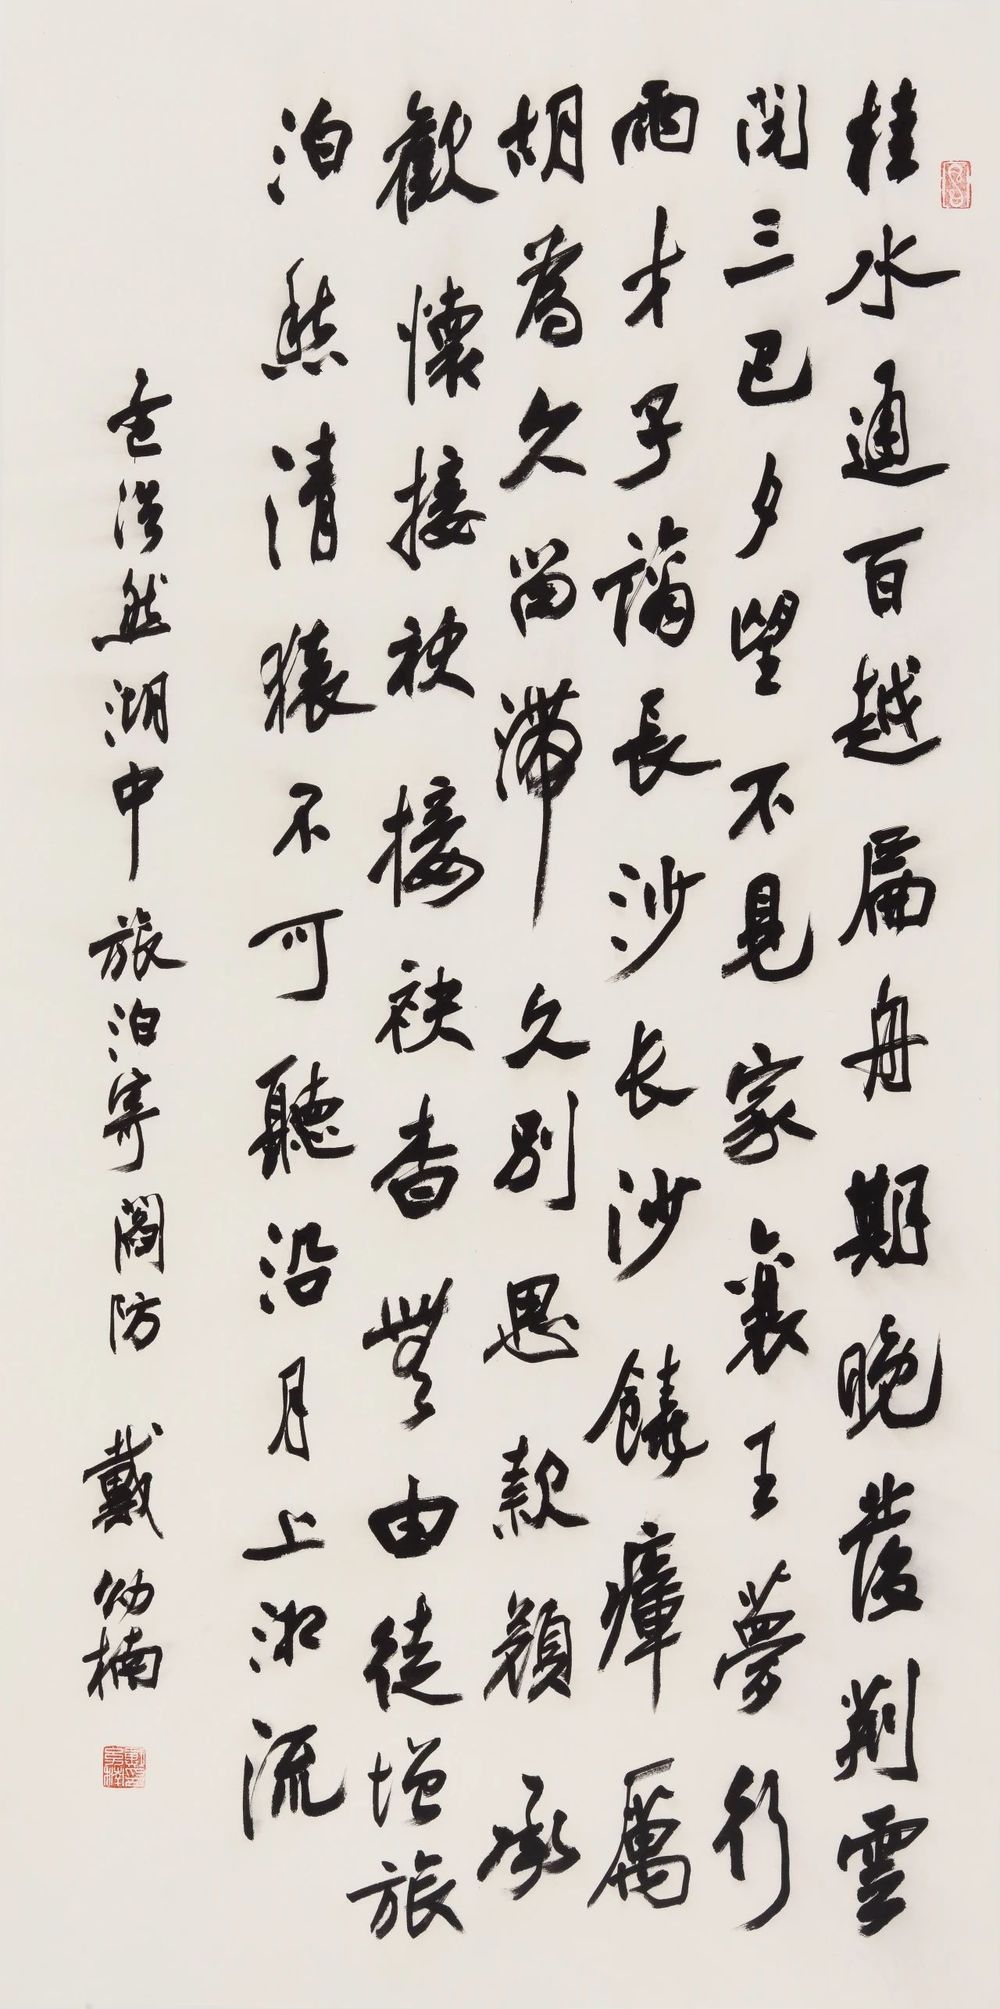 桂水通百越扁舟期晚發荆雲
閉三巴夕望不見家襄王夢行
雨才子謫長沙長沙饒瘴厲
胡為久留滯久別思款顏承
歡懷接袂接袂杳無由徒增旅
泊愁清猿不可聽沿月上湘流
孟浩然湖中旅泊寄閻防 戴幼楠